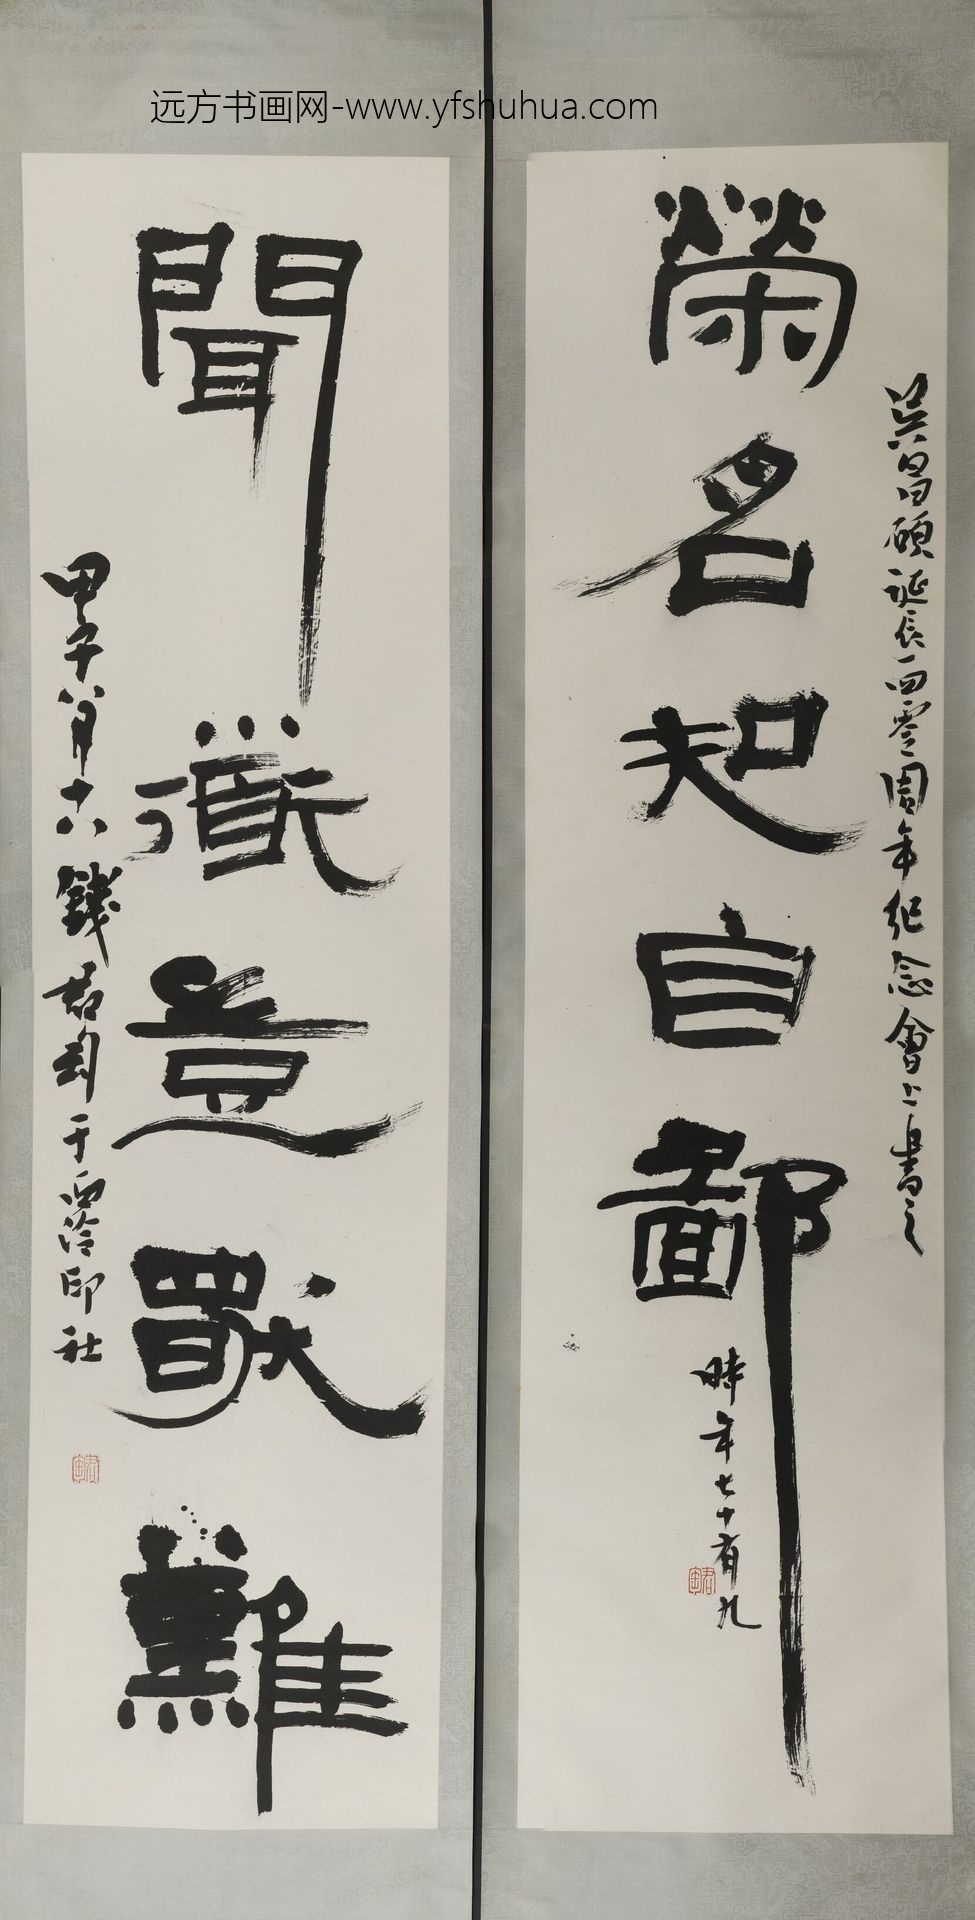 远方书画网-www.yfshuhua.com
吴昌碩誕辰一四零周年纪念會上書之
榮名知自鄙
時年七十有九
君匋
聞衜豈猒難
甲子八月十六錢君匋于西泠印社
君匋